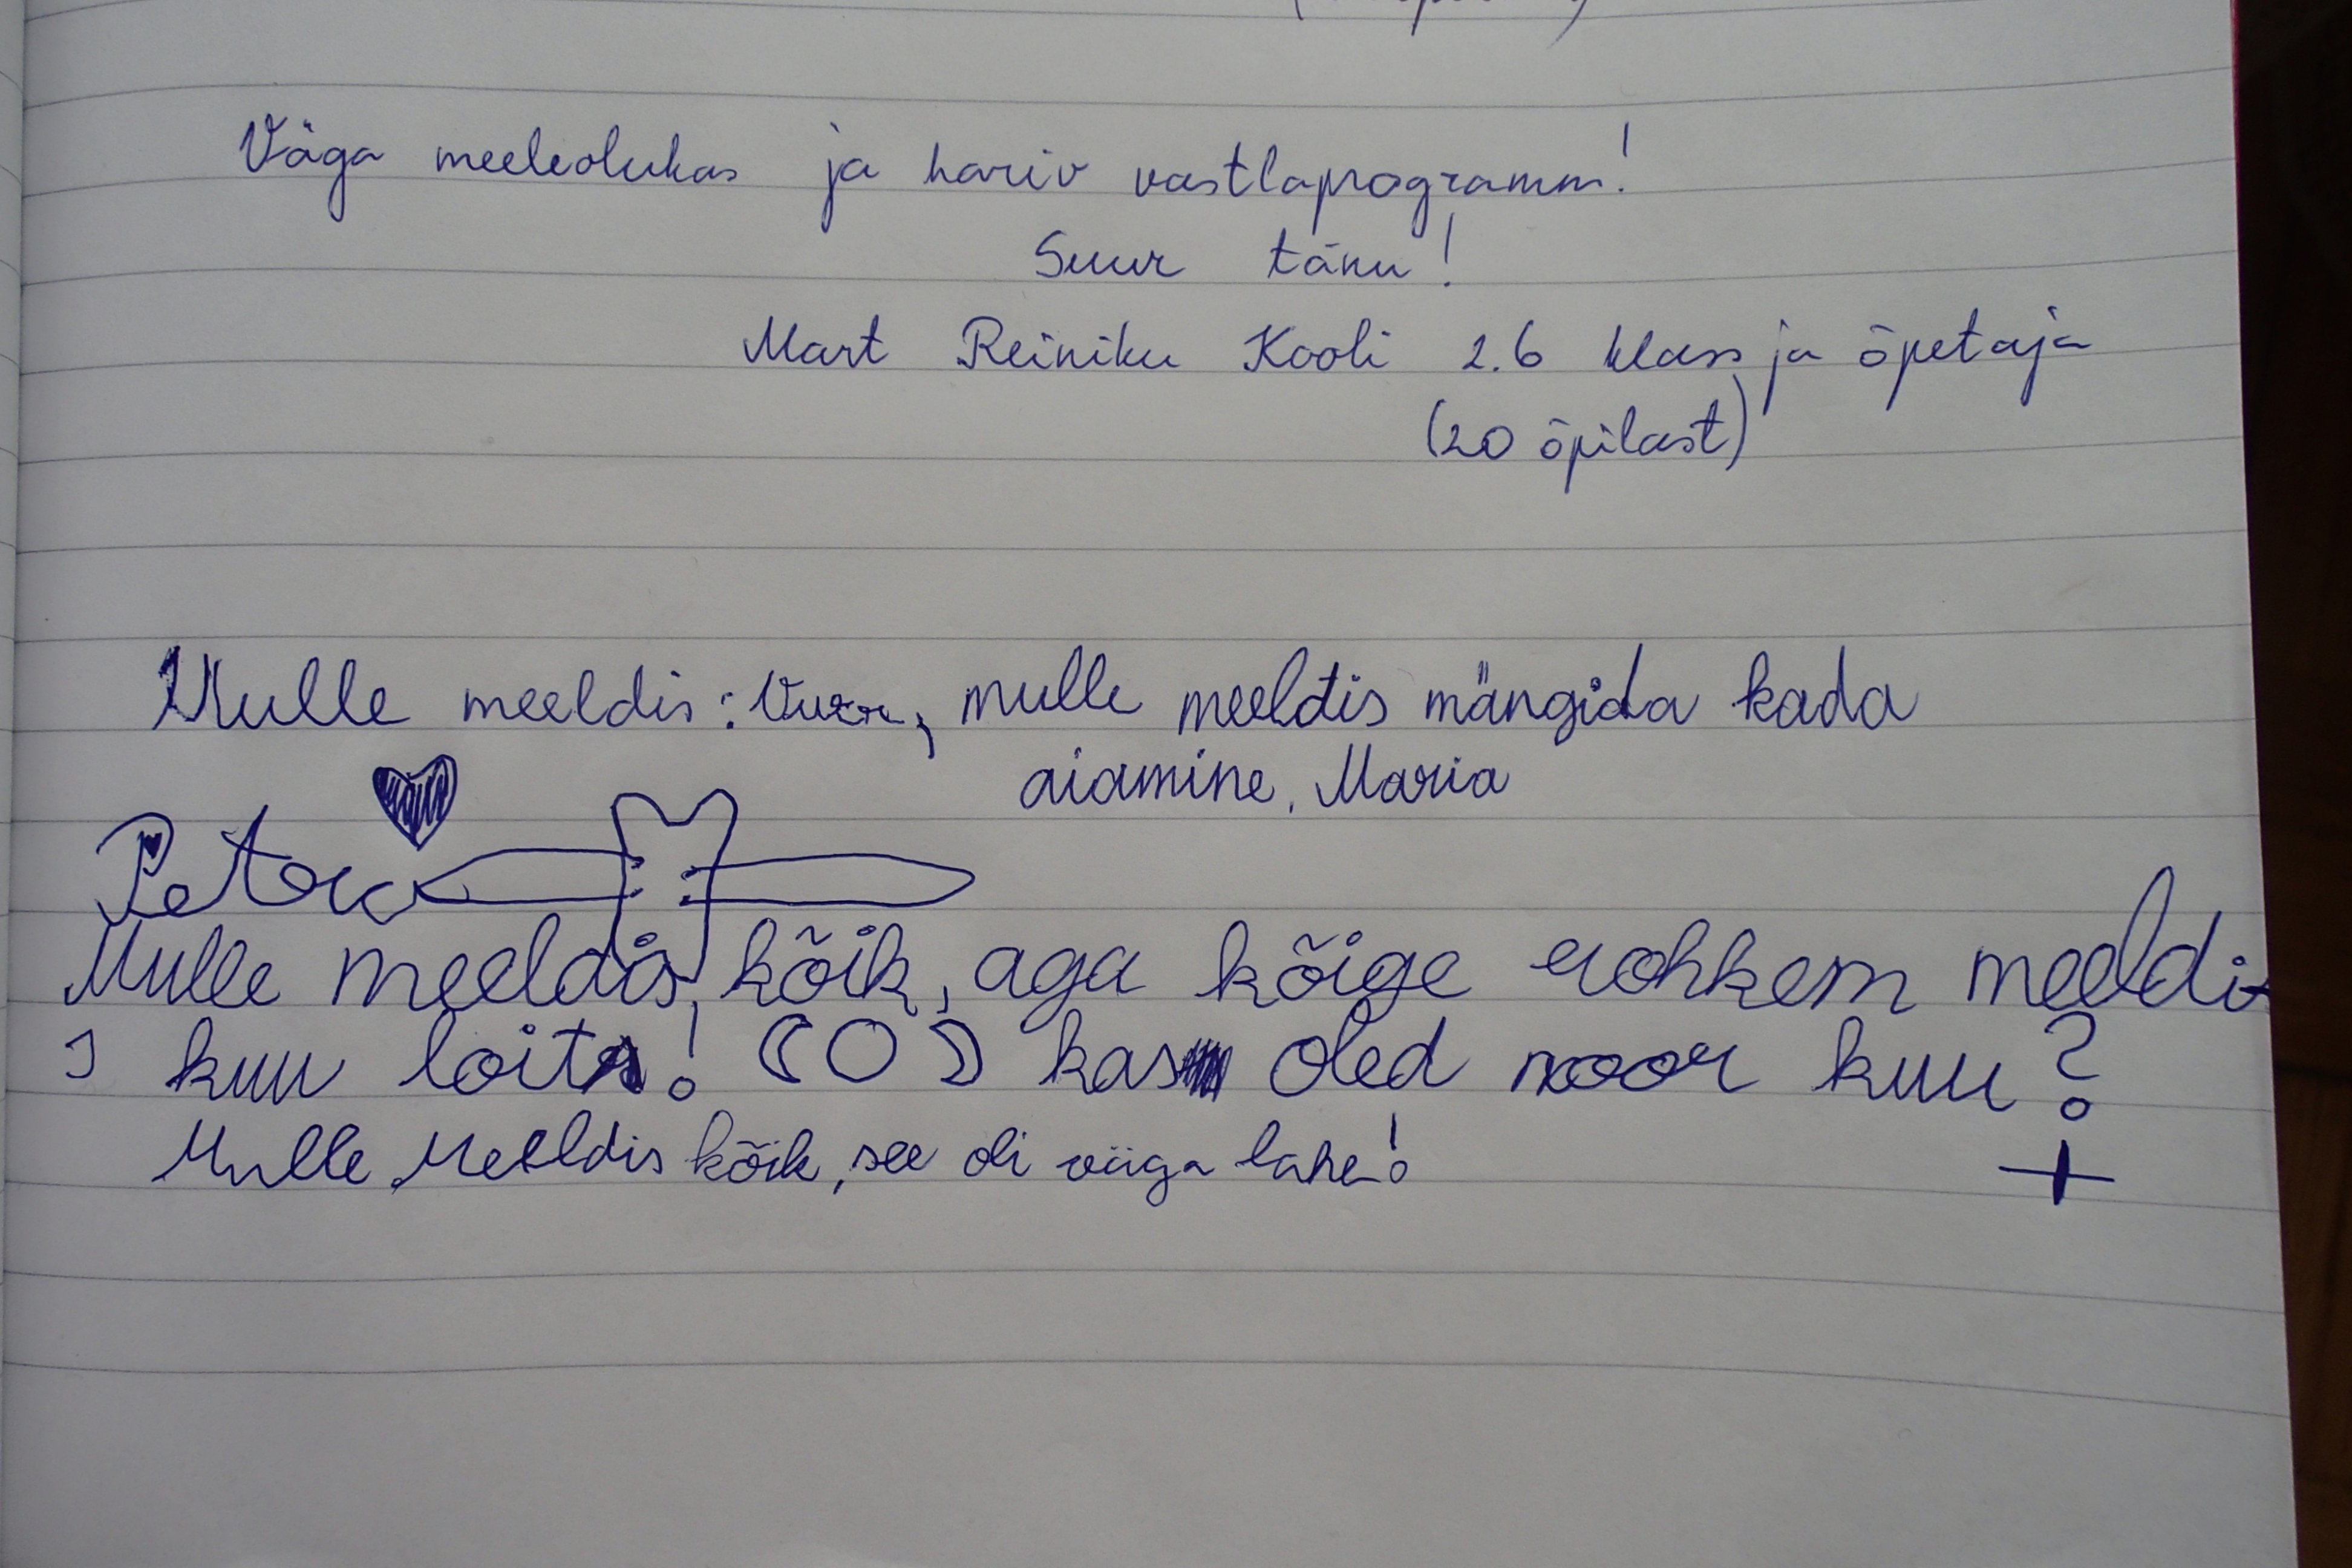 Väga meeleolukas ja hariv vastlaprogramm!
Suur tänu!
Mart Reiniku Kooli 2.6 klass ja õpetaja
(20 õpilast)
Mulle meeldis: Vurr, mulle meeldis mängida kada
aiamine. Maria
Petra
Mulle meeldis kõik, aga kõige rohkem meeldi
s kuu loits! kas oled noor kuu?
Mulle Meeldis kõik, see oli väga lahe!